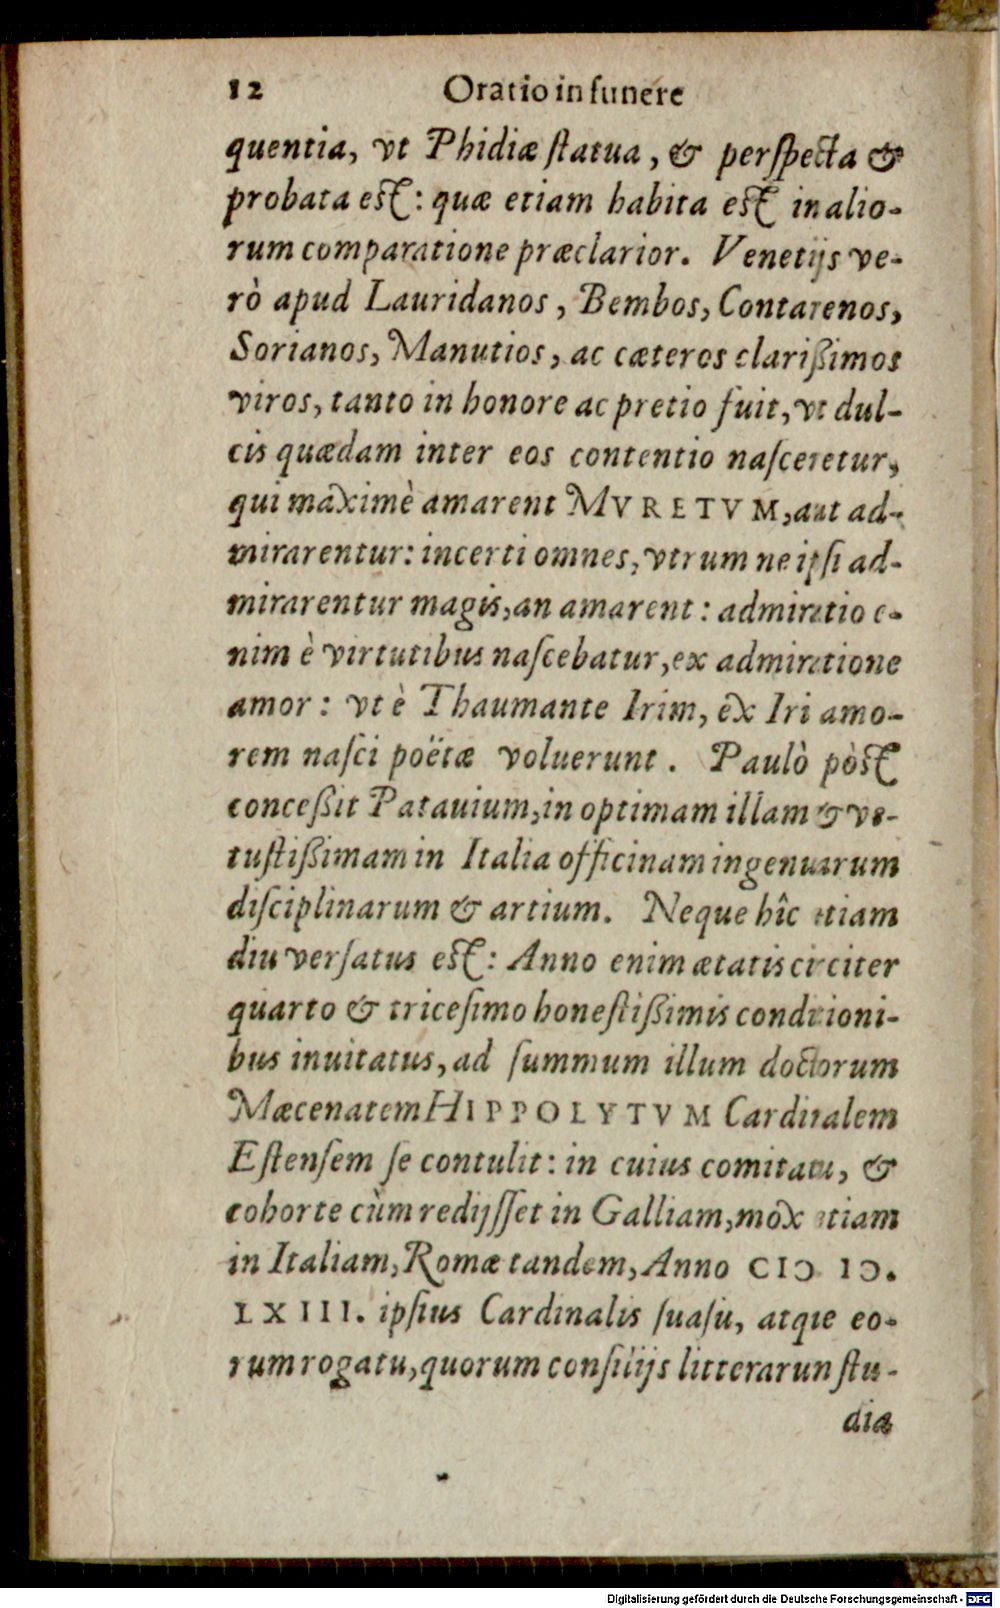 12 Oratio in funere
quentia, vt Phidiæ ſtatua, & perſpecta &
probata eſt: quæ etiam habita eſt in alio-
rum comparatione præclarior. Venetijs ve-
rò apud Lauridanos, Bembos, Contarenos,
Sorianos, Manutios, ac cæteros clarißimos
viros, tanto in honore ac pretio fuit, vt dul-
cis quædam inter eos contentio naſceretur,
qui maximè amarent MVRETVM, aut ad-
mirarentur: incerti omnes, vtrum ne ipſi ad-
mirarentur magis, an amarent: admiratio e-
nim è virtutibus naſcebatur, ex admiratione
amor: vt è Thaumante Irim, ex Iri amo-
rem naſci poëtæ voluerunt. Paulò pòſt
conceßit Patauium, in optimam illam & ve-
tuſtißimam in Italia officinam ingenuarum
diſciplinarum & artium. Neque hîc etiam
diu verſatus eſt: Anno enim ætatis circiter
quarto & triceſimo honeſtißimis conditioni-
bus inuitatus, ad ſummum illum doctorum
Mæcenatem HIPPOLYTVM Cardinalem
Eſtenſem ſe contulit: in cuius comitatu, &
cohorte cùm redijſſet in Galliam, mox etiam
in Italiam, Romæ tandem, Anno CIↃ IↃ.
LXIII. ipſius Cardinalis ſuaſu, atque eo-
rum rogatu, quorum conſilijs litterarum ſtu-
dia
Digitalisierung gefördert durch die Deutsche Forschungsgemeinschaft - DFG